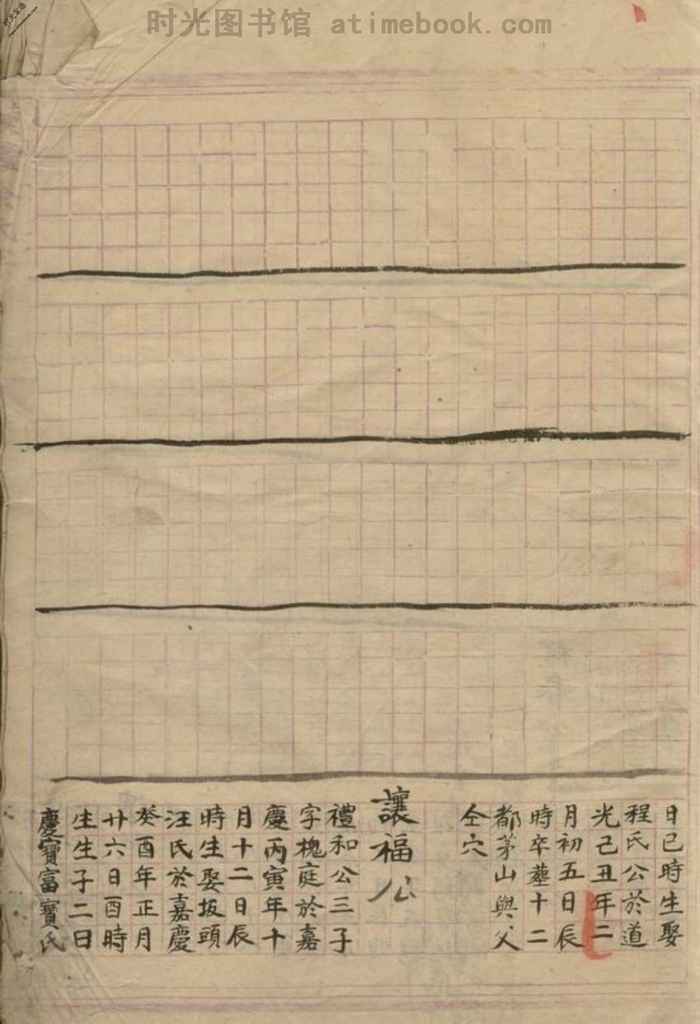 时光图书馆 atimebook.com
日巳時生娶
程氏公於道
光己丑年二
月初五日辰
時卒葬十二
都茅山與父
仝穴
讓福公
禮和公三子
字槐庭於嘉
慶丙寅年十
月十二日辰
時生娶坂頭
汪氏於嘉慶
癸酉年正月
廿六日酉時
生生子二日
慶寳富寳氏